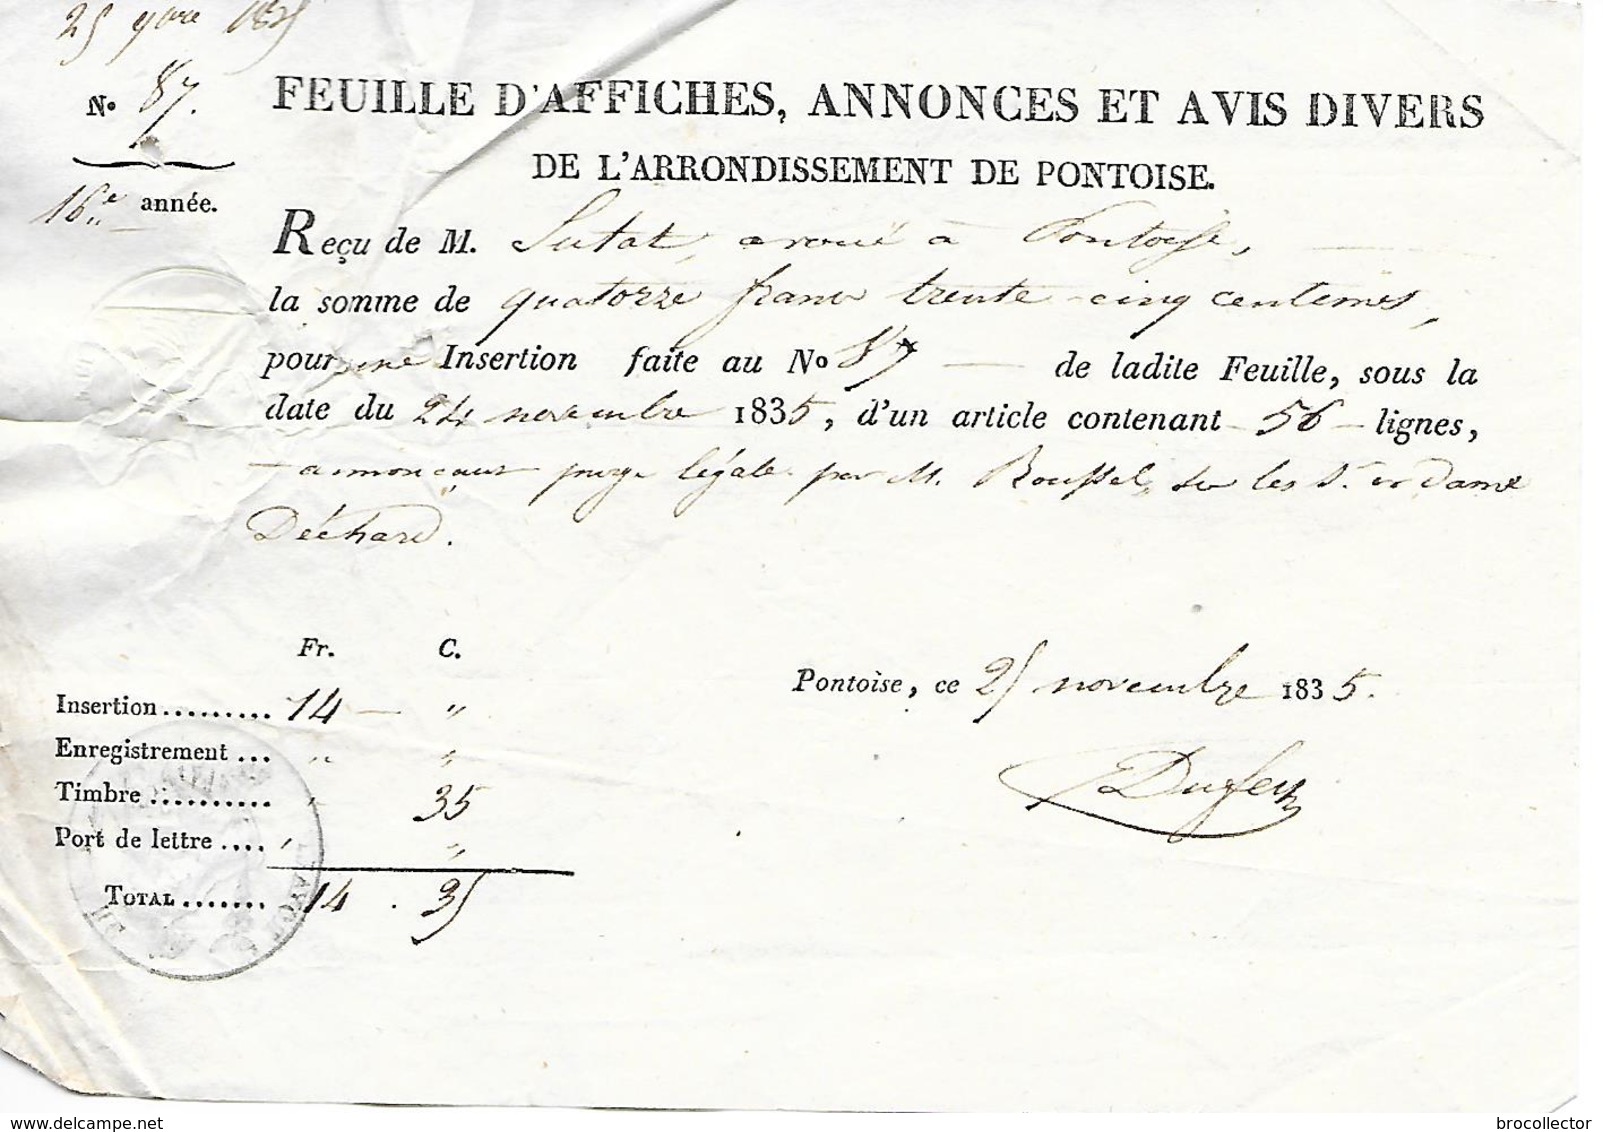 25 9bre 1835
No 87.
16e année.
FEUILLE D'AFFICHES, ANNONCES ET AVIS DIVERS
DE L'ARRONDISSEMENT DE PONTOISE.
Reçu de M. Sutat, avoué à Pontoise,
la somme de quatorze francs trente-cinq centimes,
pour une Insertion faite au No 87 de ladite Feuille, sous la
date du 24 novembre 1835, d'un article contenant 56 lignes,
annonçant purge légale par M. Roussel, sur les S. et Dame
Déchard.
Fr. C.
Insertion......... 14 — "
Enregistrement ... " "
Timbre .......... " 35
Port de lettre .... " "
TOTAL ....... 14 . 35
Pontoise, ce 25 novembre 1835.
delcampe.net
brocollector